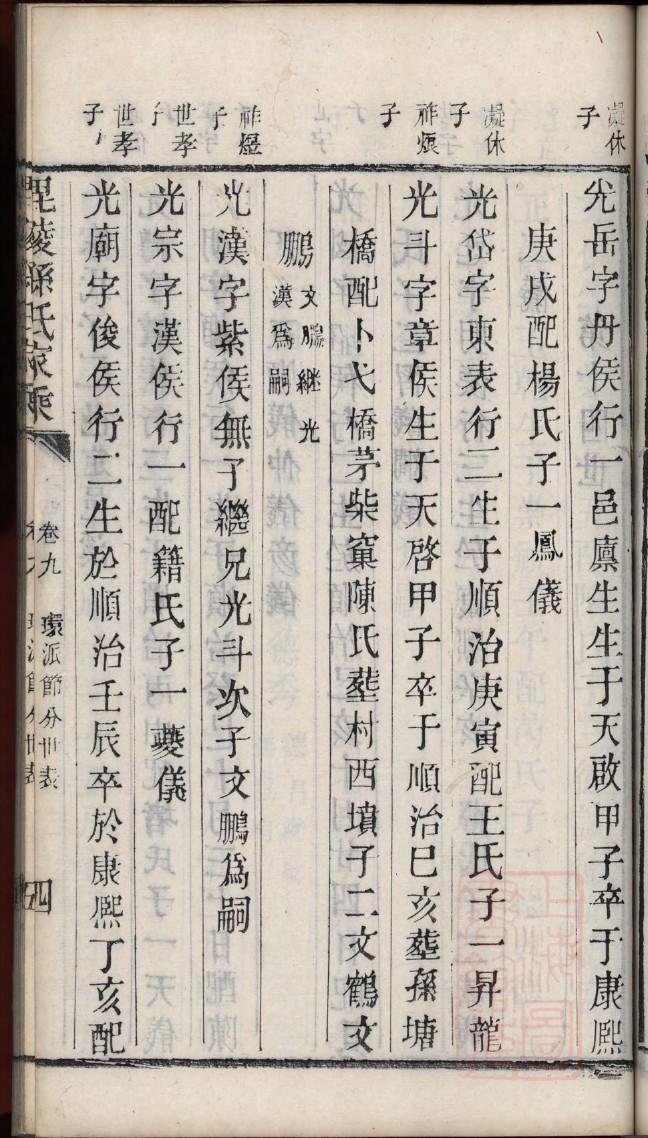 凝休子
光岳字丹侯行一邑廪生生于天啟甲子卒于康熙
庚戌配楊氏子一鳳儀
凝休子
光岱字東表行二生于順治庚寅配王氏子一昇龍
祚煩子
光斗字章侯生于天啓甲子卒于順治巳亥塟孫塘
橋配卜弋橋茅柴窠陳氏塟村西墳子二文鶴文
鵬文鵬継光漢爲嗣
祚煜子
光漢字紫侯無子繼兄光斗次子文鵬爲嗣
世孝子
光宗字漢侯行一配籍氏子一夔儀
世孝子
光廟字俊侯行二生於順治壬辰卒於康熙丁亥配
毘陵孫氏家乘
卷九 環派節分世表
四